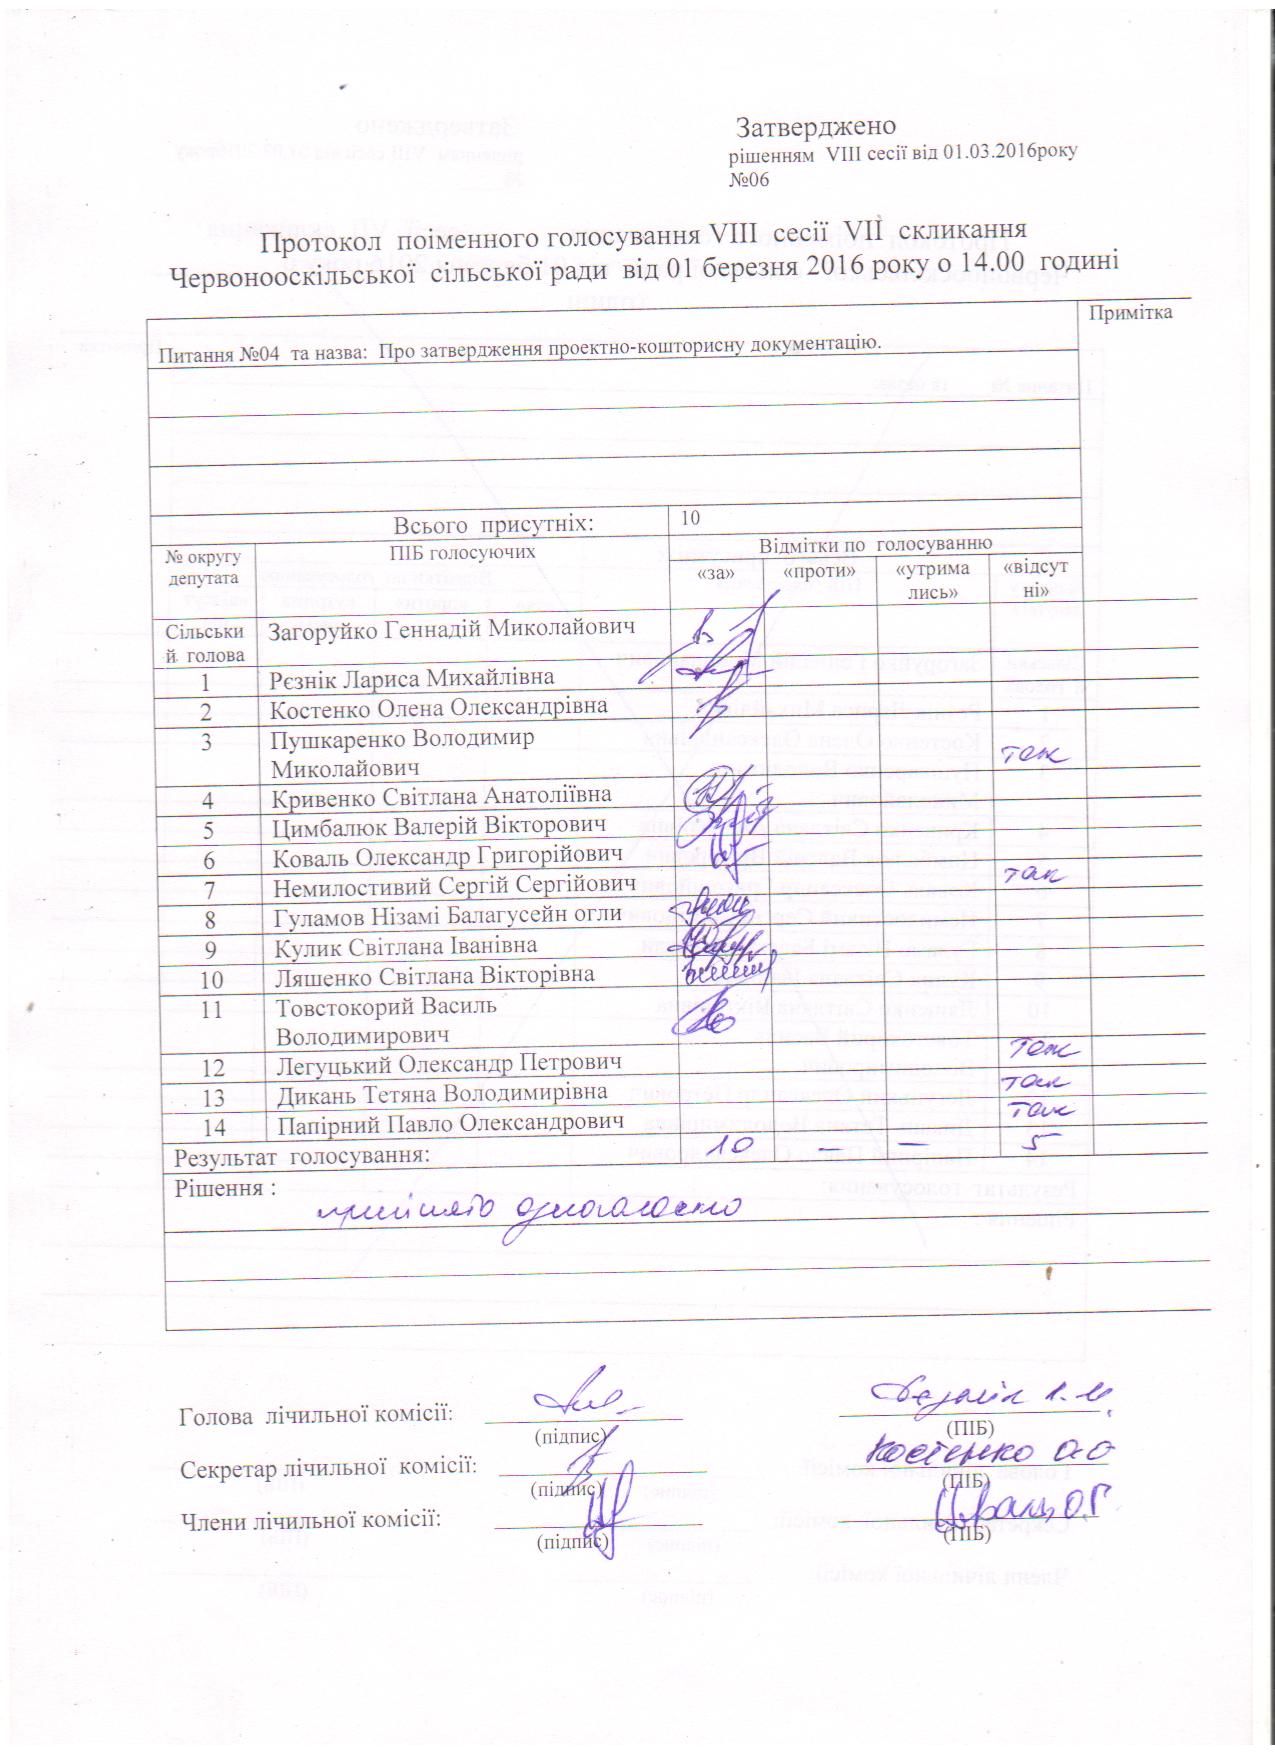 Затверджено
рішенням VIII сесії від 01.03.2016року
№06
Протокол поіменного голосування VIII сесії VII скликання
Червонооскільської сільської ради від 01 березня 2016 року о 14.00 годині
Примітка
Питання №04 та назва: Про затвердження проектно-кошторисну документацію.
Всього присутніх: 10
№ округу депутата ПІБ голосуючих Відмітки по голосуванню
«за» «проти» «утрима лись» «відсут ні»
Сільськи й голова Загоруйко Геннадій Миколайович
1 Рєзнік Лариса Михайлівна
2 Костенко Олена Олександрівна
3 Пушкаренко Володимир
Миколайович
4 Кривенко Світлана Анатоліївна
5 Цимбалюк Валерій Вікторович
6 Коваль Олександр Григорійович
7 Немилостивий Сергій Сергійович так
8 Гуламов Нізамі Балагусейн огли
9 Кулик Світлана Іванівна
10 Ляшенко Світлана Вікторівна
11 Товстокорий Василь
Володимирович
12 Легуцький Олександр Петрович
13 Дикань Тетяна Володимирівна так
14 Папірний Павло Олександрович так
Результат голосування: 10 — — 5
Рішення :
прийнято одноголосно
Голова лічильної комісії:
(підпис) (ПІБ)
Секретар лічильної комісії: Костенко О О
(підпис) (ПІБ)
Члени лічильної комісії:
(підпис) (ПІБ)